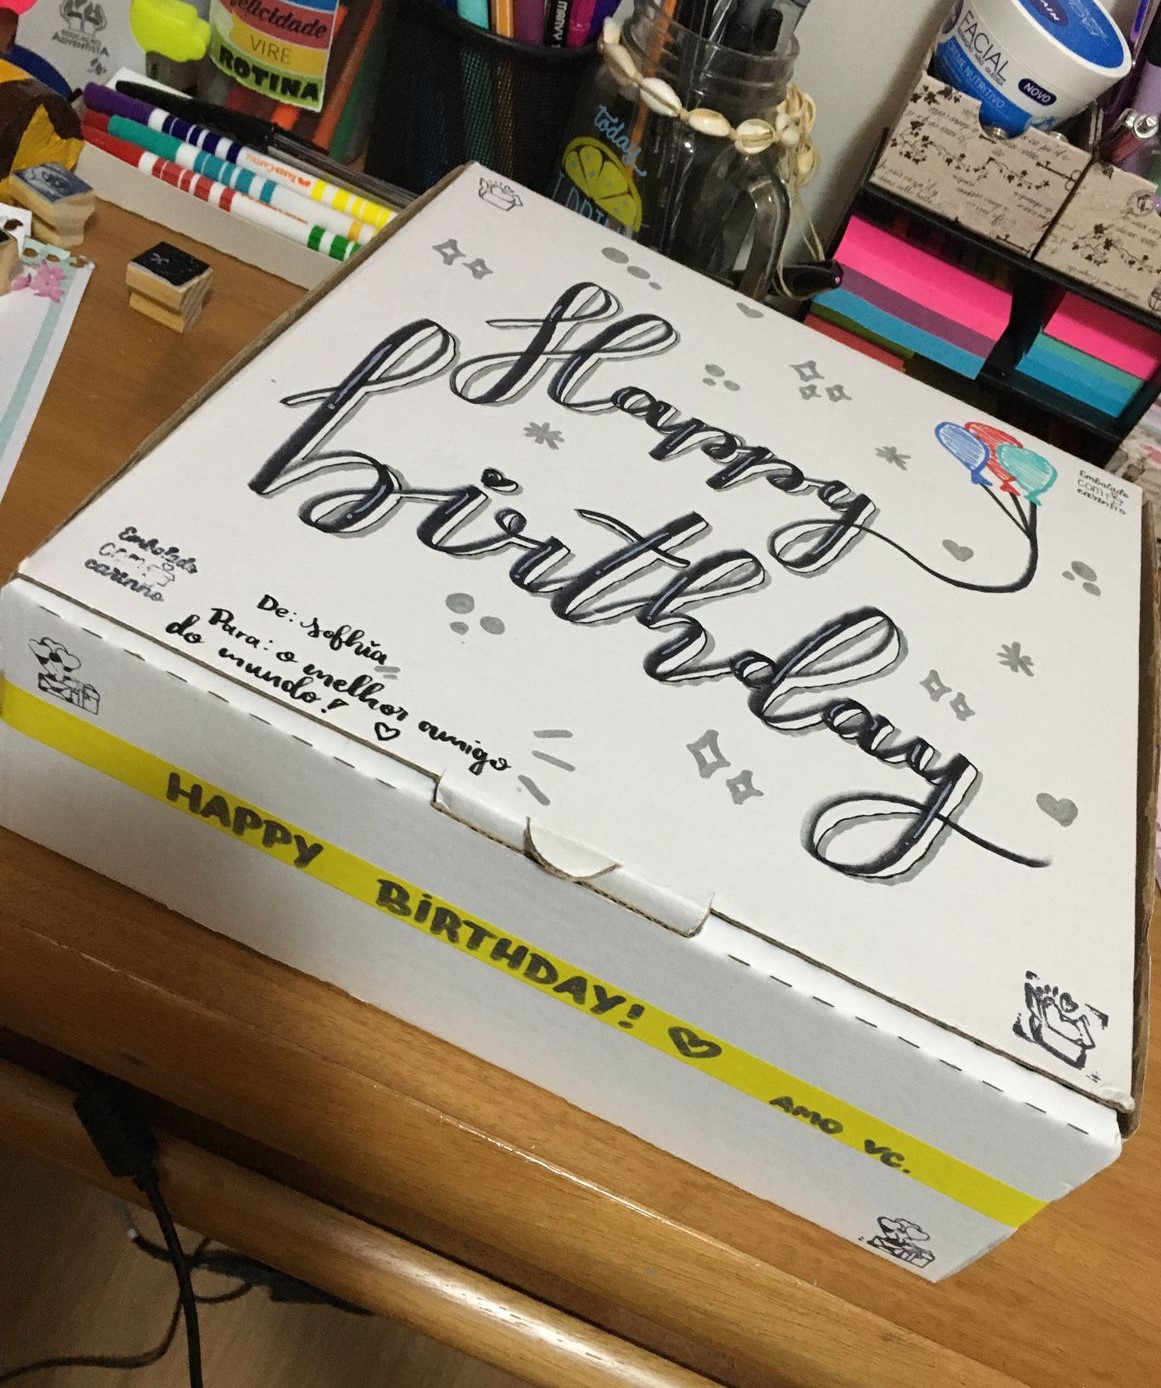 EDUCAÇÃO
ADVENTISTA
felicidade
VIRE
ROTINA
today
FACIAL
CREME NUTRITIVO
NOVO
FABER-CASTELL
Happy
birthday
Embalado
com
carinho
Embalado
com
carinho
De: Sofhia
Para: o melhor amigo
do mundo!
HAPPY BIRTHDAY!
AMO VC.